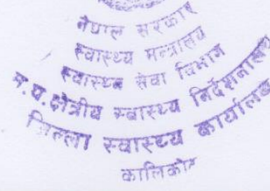 नेपाल सरकार
स्वास्थ्य मन्त्रालय
स्वास्थ्य सेवा विभाग
म.प.क्षेत्रीय स्वास्थ्य निर्देशनालय
जिल्ला स्वास्थ्य कार्यालय
कालिकोट